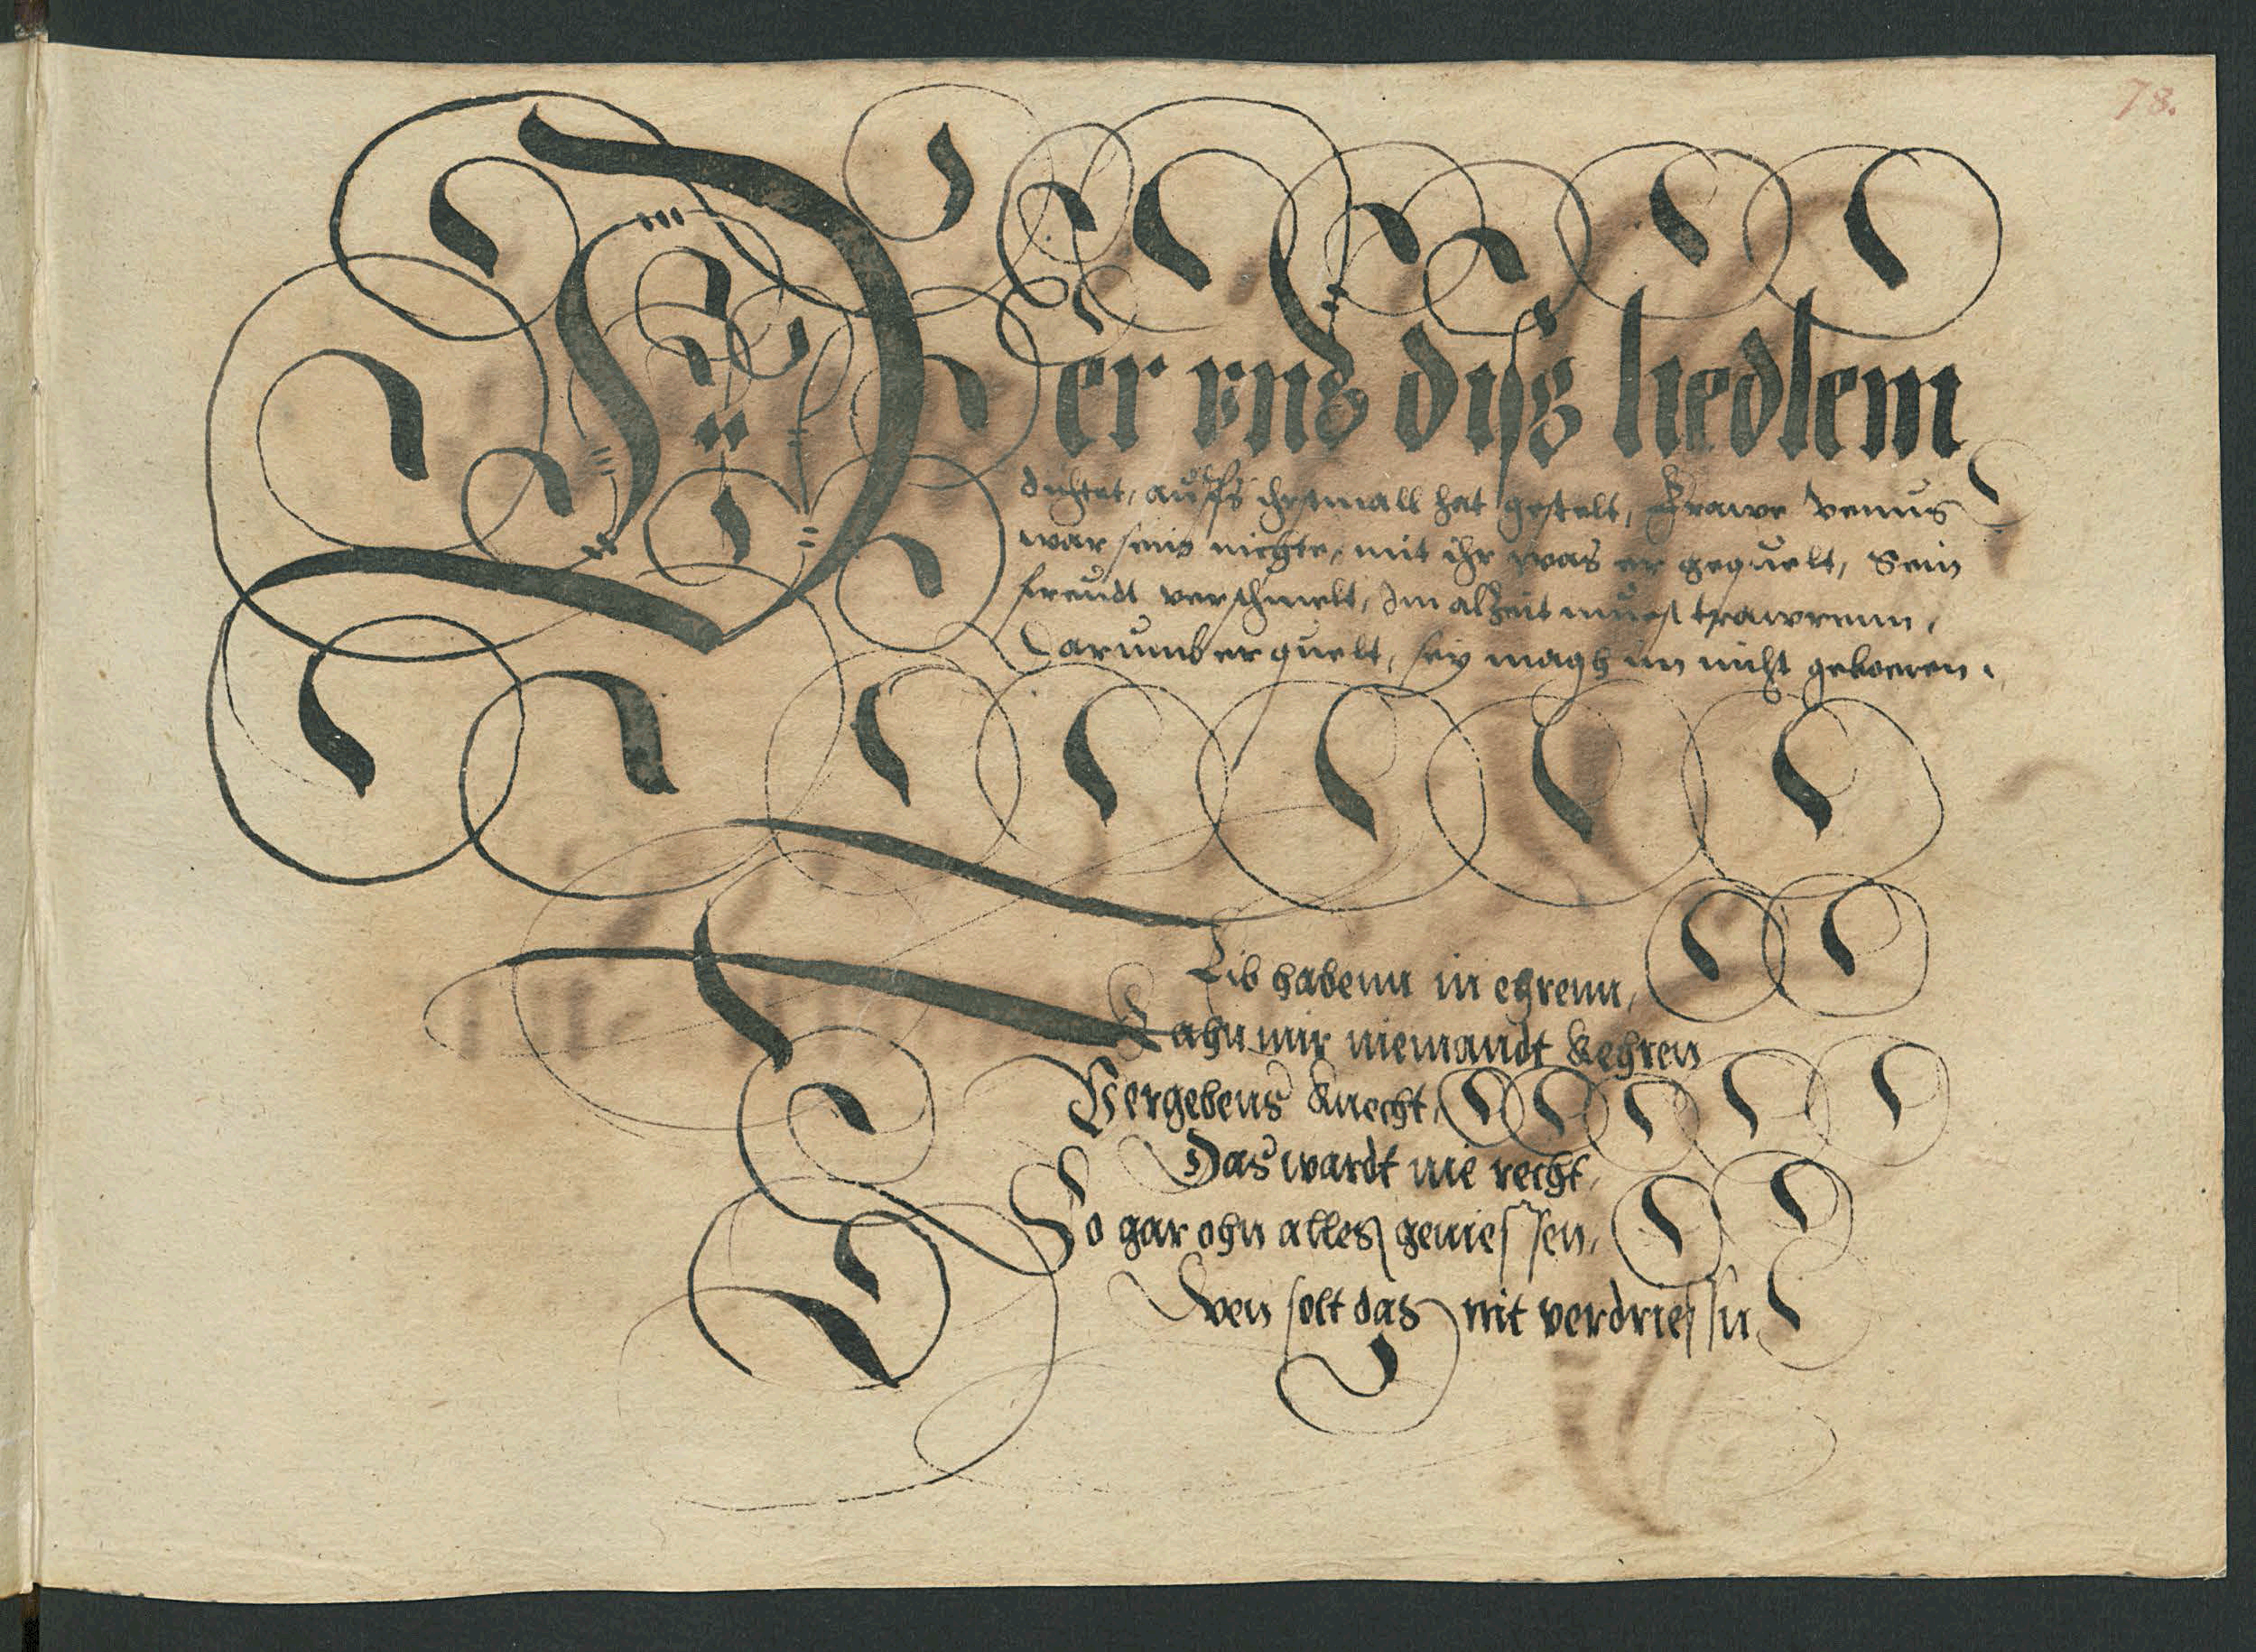 78.
Der vns diſs liedlein
dichtet, auffs ihrstmall hat gestelt, Frawe Venus
war sein nichte, mit ihr was er gequelt, Sein
freudt verschmelt, Im alzeit muest trawrenn,
Darumb er quelt, sey magh im nicht geboeren.
Lib habenn in ehrenn,
Kahn mir niemandt kehren
Vergebens knecht,
Das wardt nie recht,
So gar ohn alles genieſſen,
Wen solt das nit verdrieſſn